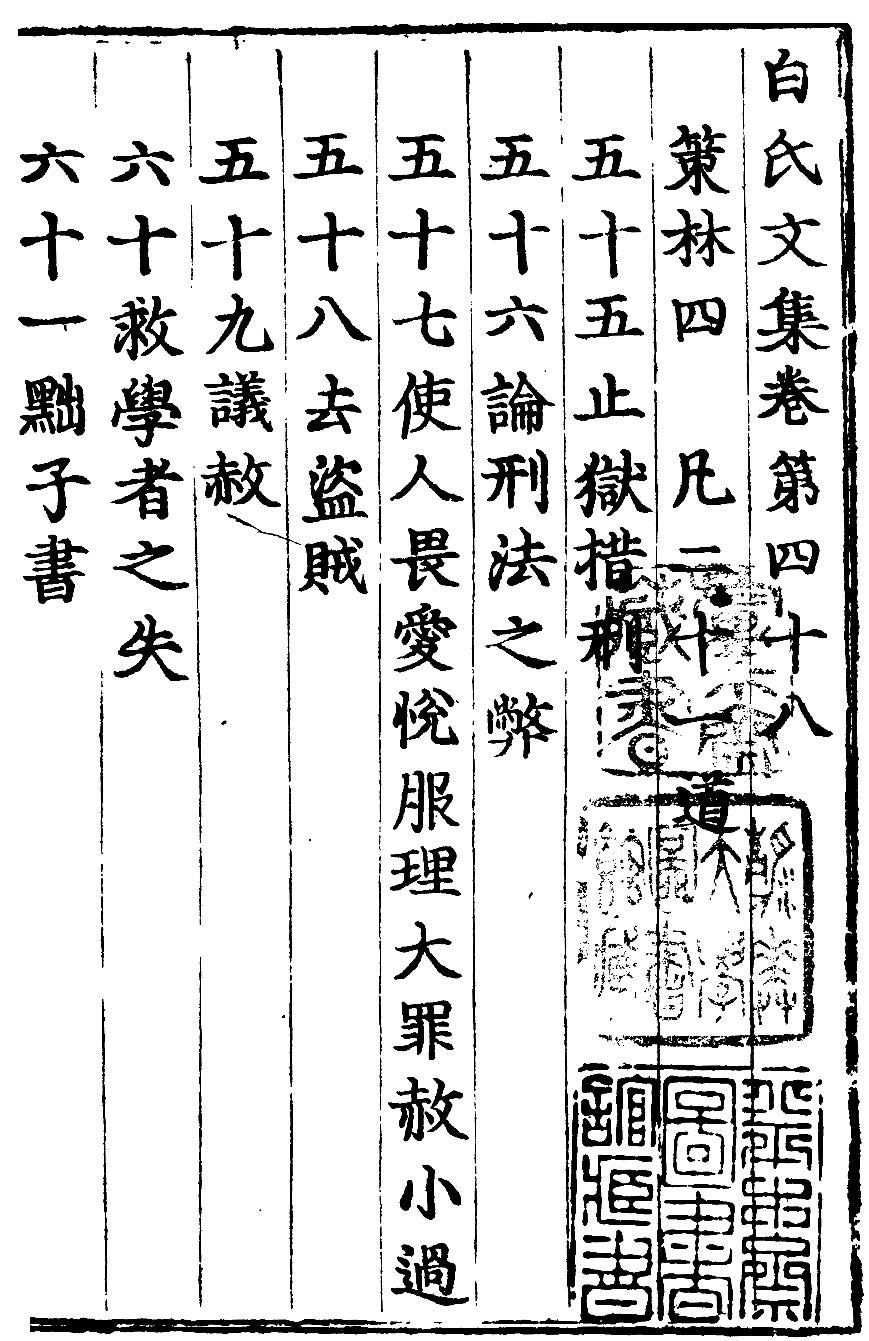 白氏文集卷第四十八
策林四　凡二十一道
五十五止獄措刑
五十六論刑法之弊
五十七使人畏愛悅服理大罪赦小過
五十八去盜賊
五十九議赦
六十救學者之失
六十一黜子書